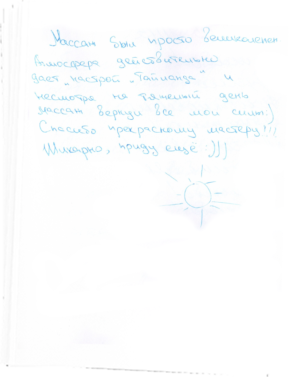 Массаж был просто великолепен
Атмосфера действительно
дает настрой „Тайланда" и
несмотря на тяжелый день
массаж вернул все мои силы:)
Спасибо прекрасному мастеру!!!
Шикарно, приду ещё :)))